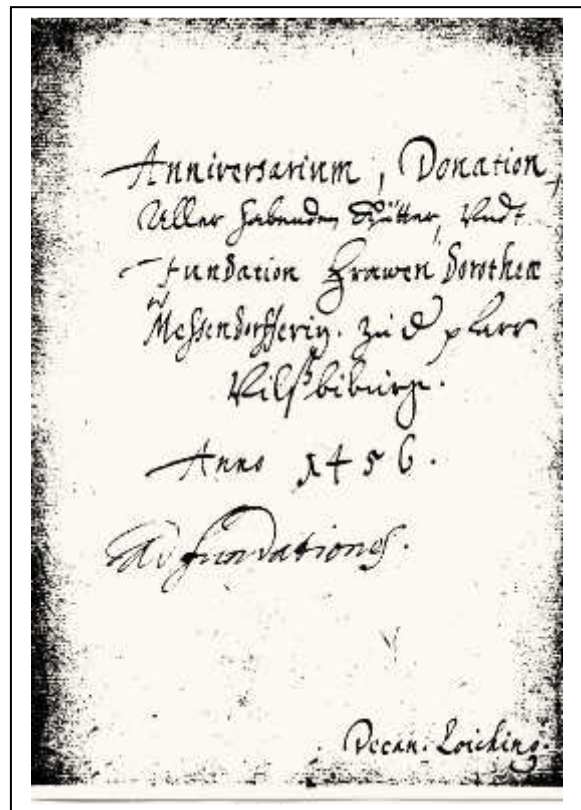 Anniversarium, Donation,
Aller habenden Gütter, Vndt
Fundation Frawen Dorotheæ
Messendorfferin. zu d pfarr
Vilßbiburg.
Anno 1456.
Ad fundationes.
Decan. Loiching.